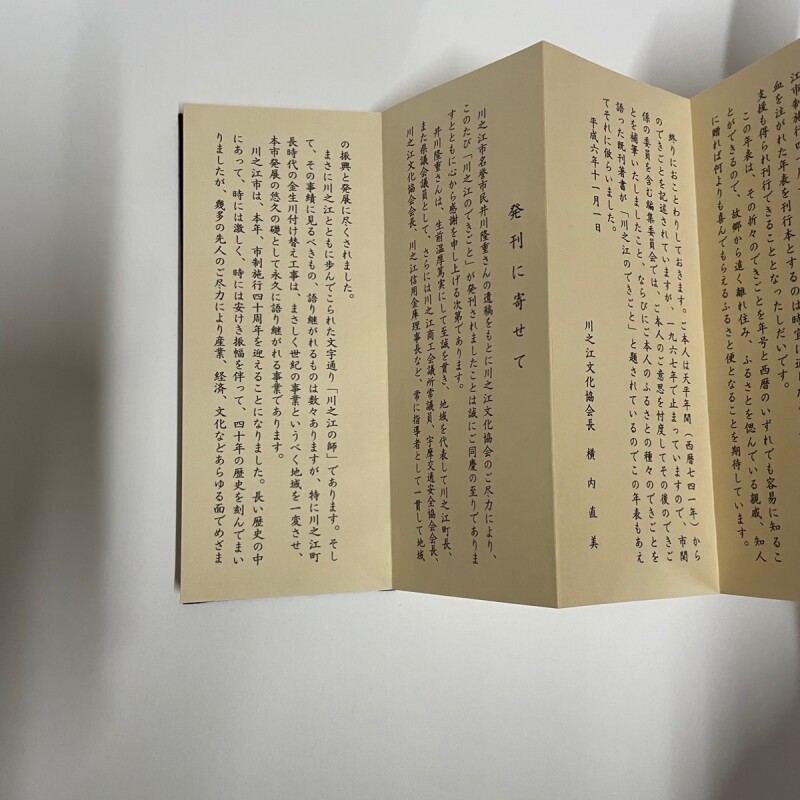 江市制施行四十周
血を注がれた年表を刊行本とするのは時宜に
支援も得られ刊行できることとなったしだいです。
この年表は、その折々のできごとを年号と西暦のいずれでも容易に知るこ
とができるので、故郷から遠く離れ住み、ふるさとを偲んでいる親戚、知人
に贈れば何よりも喜んでもらえるふるさと便となることを期待しています。
終りにおことわりしておきます。ご本人は天平年間（西暦七四一年）から
のできごとを記述されていますが、一九六七年で止まっていますので、市関
係の委員を含む編集委員会では、ご本人のご意思を忖度してその後のできご
とを補筆いたしましたこと、ならびにご本人のふるさとの種々のできごとを
語った既刊著書が「川之江のできごと」と題されているのでこの年表もあえ
てそれに倣らいました。
平成六年十一月一日
川之江文化協会長　横内直美
発刊に寄せて
川之江市名誉市民井川隆重さんの遺稿をもとに川之江文化協会のご尽力により、
このたび「川之江のできごと」が発刊されましたことは誠にご同慶の至りでありま
すとともに心から感謝を申し上げる次第であります。
井川隆重さんは、生前温厚篤実にして至誠を貫き、地域を代表して川之江町長、
また県議会議員として、さらには川之江商工会議所常議員、宇摩交通安全協会会長、
川之江文化協会会長、川之江信用金庫理事長など、常に指導者として一貫して地域
の振興と発展に尽くされました。
まさに川之江とともに歩んでこられた文字通り「川之江の師」であります。そし
て、その事績に見るべきもの、語り継がれるものは数々ありますが、特に川之江町
長時代の金生川付け替え工事は、まさしく世紀の事業というべく地域を一変させ、
本市発展の悠久の礎として永久に語り継がれる事業であります。
川之江市は、本年、市制施行四十周年を迎えることになりました。長い歴史の中
にあって、時には激しく、時には安けき振幅を伴って、四十年の歴史を刻んでまい
りましたが、幾多の先人のご尽力により産業、経済、文化などあらゆる面でめざま